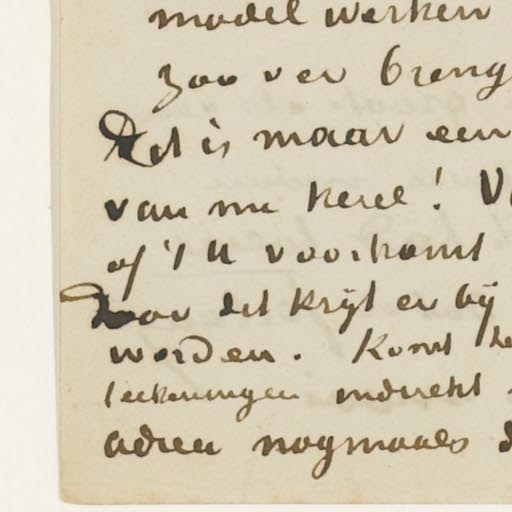 model werken
zoo ver breng
Dit is maar een
van me kerel! V
of 't U voorkomt
door dit krijt er bij
worden. Komt
teekeningen indirekt
adieu nogmaals d